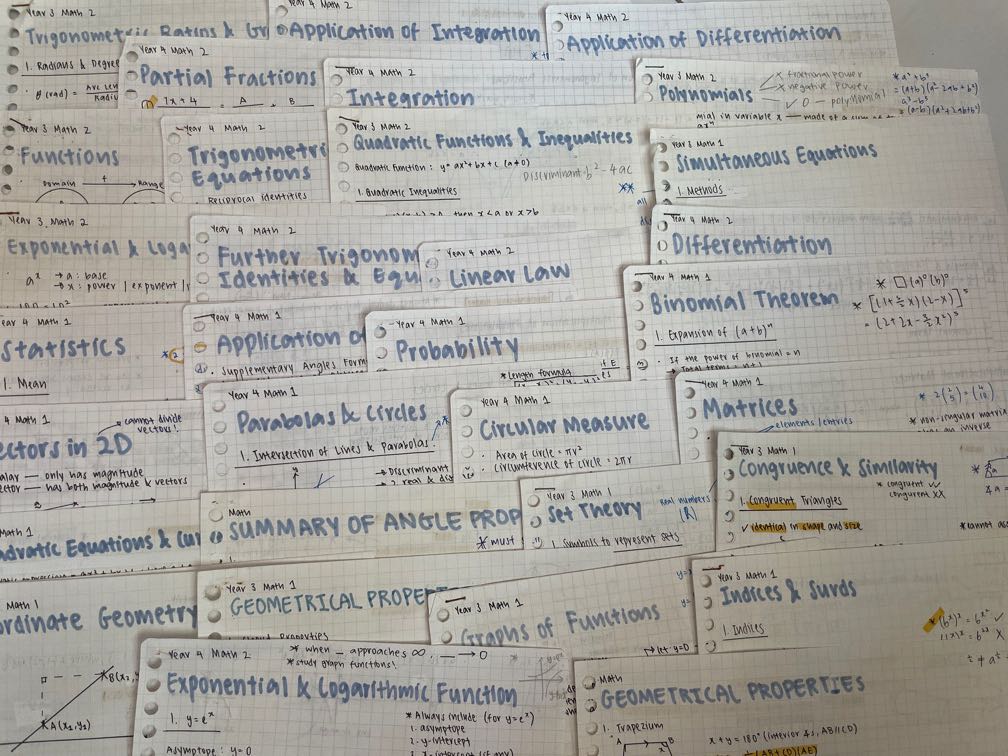 Year 3 Math 2
Trigonometric Ratios & Gr
1. Radians & Degree
θ (rad) = Arc len
Radiu
Year 4 Math 2
Application of Integration
Year 4 Math 2
Application of Differentiation
Year 4 Math 2
Partial Fractions
7x+4 A B
Year 4 Math 2
Integration
Year 3 Math 2
Polynomials
x fractional power
x negative power
✓ 0 — polynomial
mial in variable x — made of a sum
Year 3 Math 2
Functions
Domain f Range
Year 4 Math 2
Trigonometri
Equations
Reciprocal identities
Year 3 Math 2
Quadratic Functions & Inequalities
Quadratic Function: y = ax²+bx+c (a≠0)
Discriminant: b²-4ac
1. Quadratic Inequalities
then x<a or x>b
**
all
Year 3 Math 1
Simultaneous Equations
1. Methods
Year 3 Math 2
Exponential & Loga
aˣ → a: base
→ x: power / exponent /
100 = 10²
Year 4 Math 2
Further Trigonom
Identities & Equ
Year 4 Math 2
Linear Law
Year 4 Math 2
Differentiation
Year 4 Math 1
Binomial Theorem
1. Expansion of (a+b)ⁿ
If the power of binomial = n
* □ (a)⁰ (b)⁰
Math 1
Statistics
1. Mean
Year 4 Math 1
Application o
Supplementary Angles Form
Year 4 Math 1
Probability
* Length formula
Year 4 Math 1
Matrices
elements/entries
* non-singular matri
an inverse
4 Math 1
ectors in 2D
cannot divide
vectors!
alar — only has magnitude
ector — has both magnitude & vectors
Year 4 Math 1
Parabolas & Circles
1. Intersection of Lines & Parabolas
→ Discriminant
Year 4 Math 1
Circular Measure
· Area of circle = πr²
· Circumference of circle = 2πr
Year 3 Math 1
Congruence & Similarity
* congruent ✓✓
congurent XX
1. Congruent Triangles
✓ identical in shape and size
* cannot
Math 1
adratic Equations & Cur
Math
SUMMARY OF ANGLE PROP
* must
Year 3 Math 1
Set Theory
real numbers
(R)
1. Symbols to represent sets
Math 1
ordinate Geometry
B(x₂,
A(x₁,y₁)
Year 3 Math 1
GEOMETRICAL PROPE
Properties
Year 3 Math 1
Graphs of Functions
let y=0
Year 3 Math 1
Indices & Surds
1. Indices
Year 4 Math 2
* when _ approaches ∞, _ → 0
* study graph functions!
Exponential & Logarithmic Function
1. y = eˣ
Asymptote: y=0
* Always include (for y=eˣ)
1. asymptote
2. y-intercept
Math
GEOMETRICAL PROPERTIES
1. Trapezium
A B
x + y = 180° (interior ∠s, AB//CD)